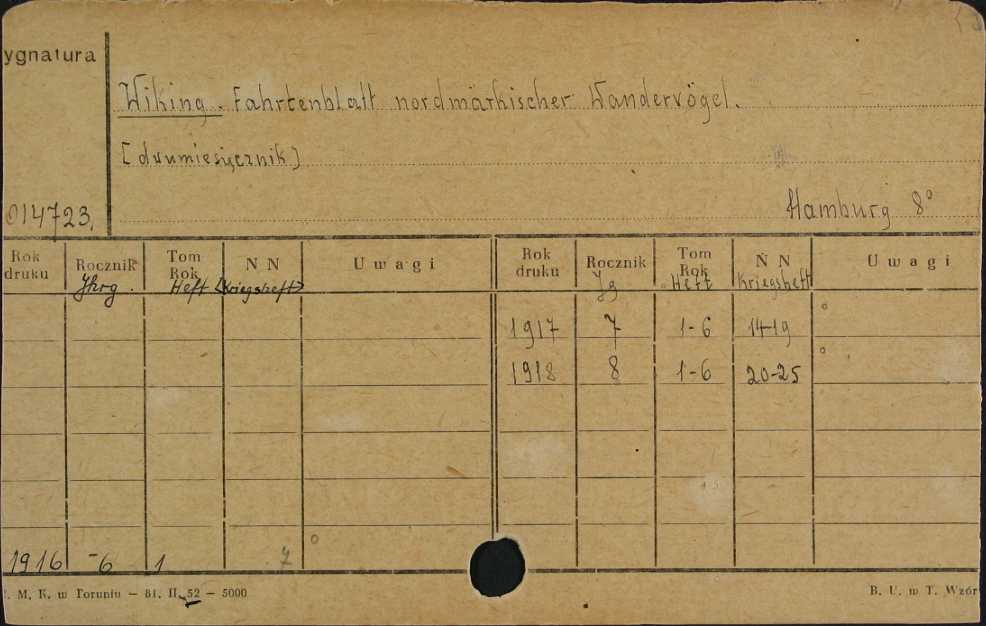 ygnatura
Wiking. Fahrtenblatt nordmärkischer Wandervögel.
[dwumiesięcznik]
014723.
Hamburg 8°
Rok druku Rocznik Tom Rok N N Uwagi Rok druku Rocznik Tom Rok N N Uwagi
Jhrg. Heft (Kriegsheft) Jg Heft Kriegsheft
1917 7 1-6 14-19
1918 8 1-6 20-25
1916 6 1 7
M. K. w Toruniu — 81. II. 52 — 5000
B. U. w T. Wzór